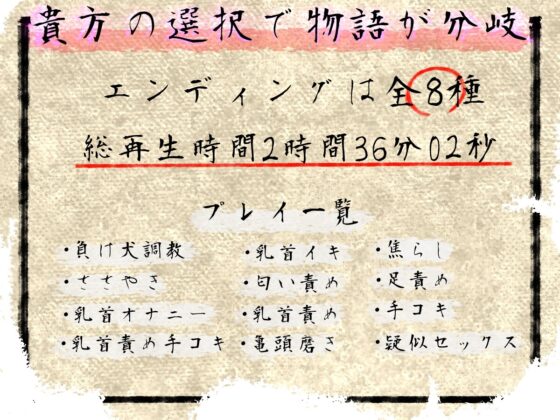 貴方の選択で物語が分岐
エンディングは全8種
総再生時間2時間36分02秒
プレイ一覧
・負け犬調教 ・乳首イキ ・焦らし
・ささやき ・匂い責め ・足責め
・乳首オナニー ・乳首責め ・手コキ
・乳首責め手コキ ・亀頭磨き ・疑似セックス